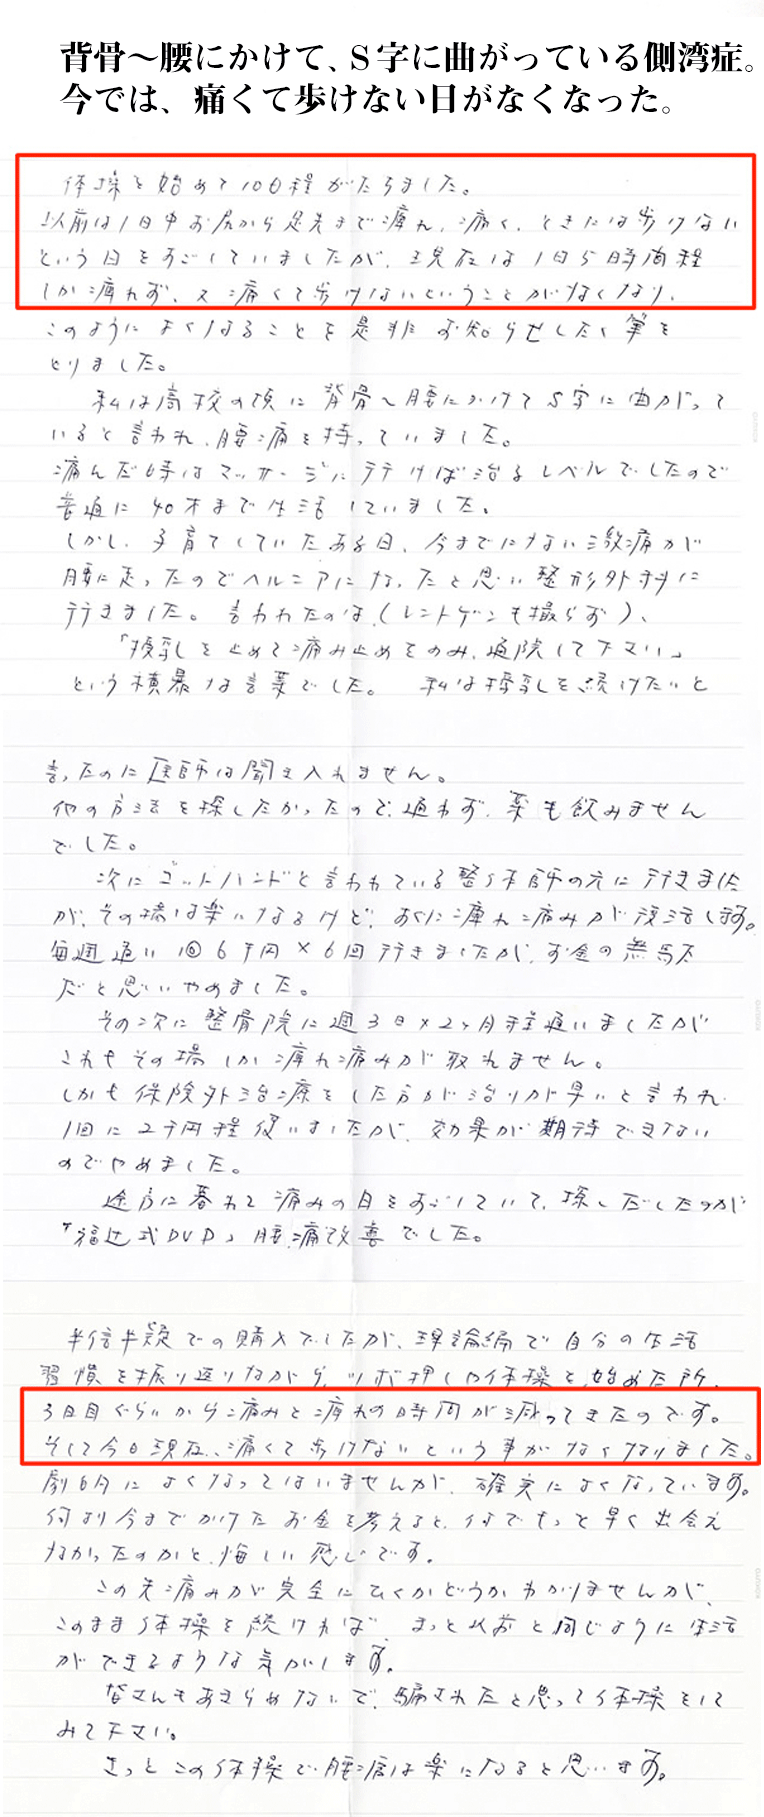 背骨～腰にかけて、S字に曲がっている側湾症。
今では、痛くて歩けない日がなくなった。
体操を始めて10日程がたちました。
以前は1日中お尻から足先まで痺れ、痛く、ときには歩けない
という日をすごしていましたが、現在は1日5時間程
しか痺れず、又痛くて歩けないということがなくなり、
このようによくなることを是非お知らせしたく筆を
とりました。
私は高校の頃に背骨～腰にかけてS字に曲がって
いると言われ、腰痛を持っていました。
痛んだ時はマッサージに行けば治るレベルでしたので
普通に40才まで生活していました。
しかし、子育てしていたある日、今までにない激痛が
腰に走ったのでヘルニアになったと思い整形外科に
行きました。言われたのは、(レントゲンも撮らず)、
「授乳を止めて痛み止めをのみ、通院して下さい」
という横暴な言葉でした。 私は授乳を続けたいと
言ったのに医師は聞き入れません。
他の方法を探したかったので、通わず、薬も飲みません
でした。
次にゴットハンドと言われている整体師の元に行きました
が、その場は楽になるけど、すぐに痺れ痛みが復活します。
毎週通い1回6千円×6回行きましたが、お金の無駄
だと思いやめました。
その次に整骨院に週3日×2ヶ月程通いましたが
これもその場しか痺れ痛みが取れません。
しかも保険外治療をした方が治りが早いと言われ、
1回に2千円程使いましたが、効果が期待できない
のでやめました。
途方に暮れて痛みの日をすごしていて、探しだしたのが
「福辻式DVD」腰痛改善でした。
半信半疑での購入でしたが、理論編で自分の生活
習慣を振り返りながら、ツボ押しや体操を始めた所、
3日目ぐらいから痛みと痺れの時間が減ってきたのです。
そして今日現在、痛くて歩けないという事がなくなりました。
劇的によくなってはいませんが、確実によくなっています。
何より今までかけたお金を考えると、なでもっと早く出会え
なかったのかと、悔しい感じです。
この先痛みが完全にひくかどうかわかりませんが、
このまま体操を続ければ、きっと以前と同じように生活
ができるような気がします。
皆さんもあきらめないで、騙されたと思って体操をして
みて下さい。
きっとこの体操で腰痛は楽になると思います。